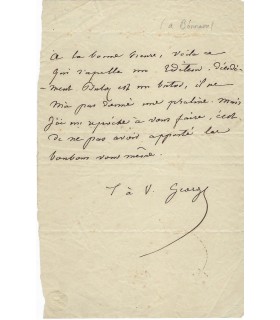 (à
A la bonne heure, voilà ce
qui s'apelle un Editeur. Décidé-
ment Buloz est un butor, il ne
m'a pas donné une praline. mais
j'ai un reproche à vous faire, c'est
de ne pas avoir apporté les
bonbons vous même.
T à V. George